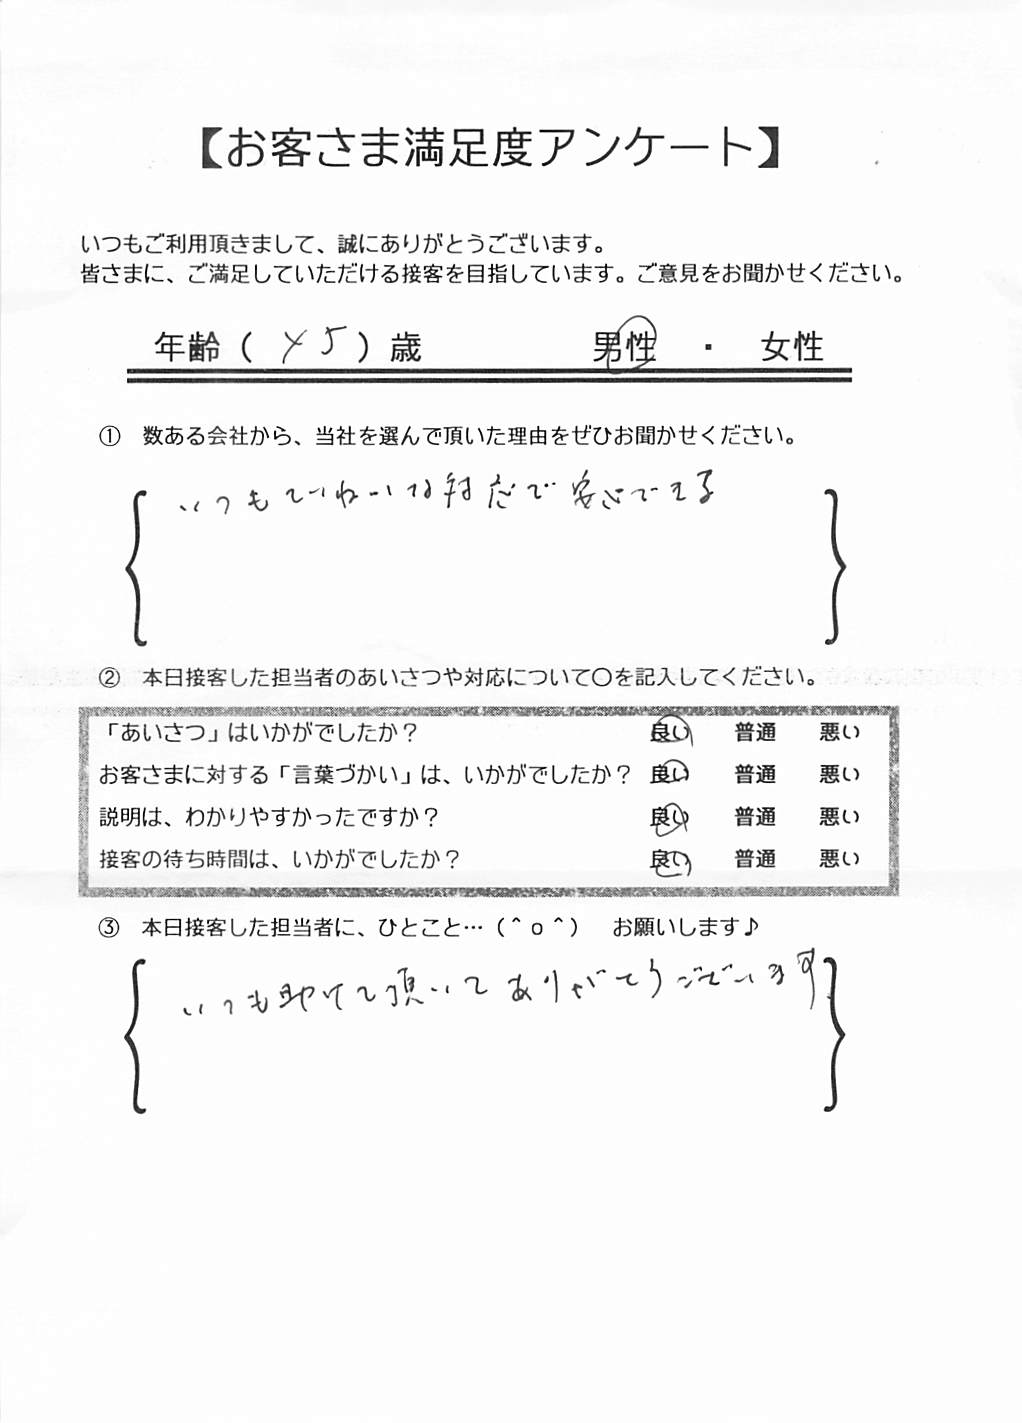 【お客さま満足度アンケート】
いつもご利用頂きまして、誠にありがとうございます。
皆さまに、ご満足していただける接客を目指しています。ご意見をお聞かせください。
年齢（ 45 ）歳 男性 ・ 女性
① 数ある会社から、当社を選んで頂いた理由をぜひお聞かせください。
いつもていねいな対応で安心できる
② 本日接客した担当者のあいさつや対応について〇を記入してください。
「あいさつ」はいかがでしたか？ 良い 普通 悪い
お客さまに対する「言葉づかい」は、いかがでしたか？ 良い 普通 悪い
説明は、わかりやすかったですか？ 良い 普通 悪い
接客の待ち時間は、いかがでしたか？ 良い 普通 悪い
③ 本日接客した担当者に、ひとこと…（＾ｏ＾） お願いします♪
いつも助けて頂いてありがとうございます。